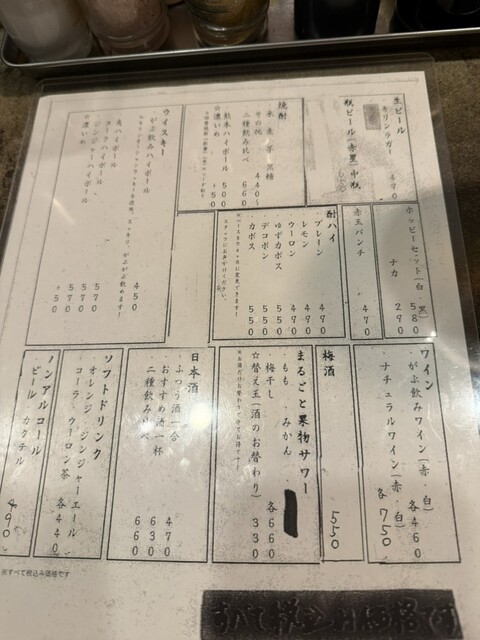 生ビール
キリンラガー 490
瓶ビール(赤星)中瓶
焼酎
・米・麦・芋・黒糖 440～
その他
二種飲み比べ 660
熊本ハイボール 500
☆濃いめ +50
ウイスキー
がぶ飲みハイボール 450
角ハイボール 570
コークハイボール 570
ジンジャーハイボール 570
☆濃いめ +50
ホッピーセット(白・黒) 580
ナカ 290
赤玉パンチ 470
酎ハイ
・プレーン 470
・レモン 490
・ウーロン 490
・ゆずカボス 550
・デコポン 550
・カボス 550
スタッフにお声がけください。
ワイン
・がぶ飲みワイン(赤・白) 各460
・ナチュラルワイン(赤・白) 各750
梅酒 550
まるごと果物サワー
・もも・みかん・
・梅干し 各660
☆替え玉(酒のお替わり) 330
日本酒
・ふつう酒一合 470
・おすすめ酒一杯 630
・二種飲み比べ 660
ソフトドリンク
オレンジ・ジンジャーエール
コーラ・ウーロン茶 各440
ノンアルコール
ビール・カクテル 490
※すべて税込み価格です
すべて税込み価格です